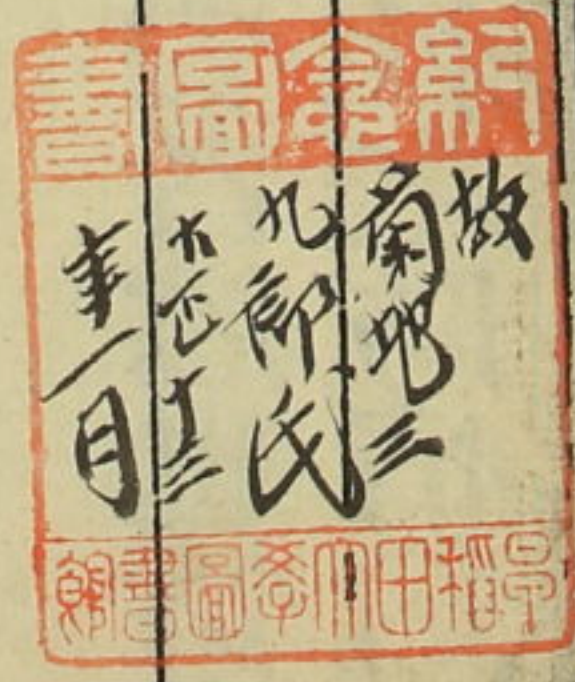 紀念圖書
故
菊地三
九郎氏
大正十三
年一月
早稲田大學圖書館